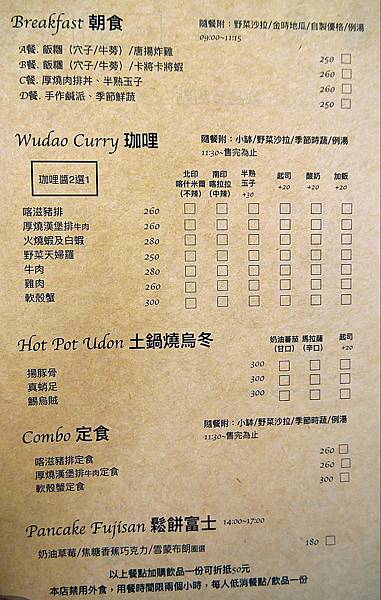 Breakfast 朝食
隨餐附：野菜沙拉/金時地瓜/自製優格/例湯
09:00~11:15
A餐. 飯糰（穴子/牛蒡）/唐揚炸雞 250
B餐. 飯糰（穴子/牛蒡）/卡將卡將蝦 260
C餐. 厚燒肉排丼、半熟玉子 260
D餐. 手作鹹派、季節鮮蔬 250
Wudao Curry 珈哩
隨餐附：小缽/野菜沙拉/季節時蔬/例湯
11:30~售完為止
珈哩醬2選1
北印 喀什米爾 (不辣)
南印 喀拉拉 (中辣)
半熟 玉子 +30
起司 +20
酸奶 +20
加飯 +20
喀滋豬排 260
厚燒漢堡排牛肉 260
火燒蝦及白蝦 280
野菜天婦羅 250
牛肉 280
雞肉 260
軟殼蟹 300
Hot Pot Udon 土鍋燒烏冬
奶油蕃茄 (甘口)
馬拉薩 (辛口)
起司 +20
揚豚骨 300
真蛸足 300
鰑烏賊 300
Combo 定食
隨餐附：小缽/野菜沙拉/季節時蔬/例湯
11:30~售完為止
喀滋豬排定食 260
厚燒漢堡排牛肉定食 260
軟殼蟹定食 300
Pancake Fujisan 鬆餅富士 14:00~17:00
奶油草莓/焦糖香蕉巧克力/雪蒙布朗圈選 180
以上餐點加購飲品一份可折抵50元
本店禁用外食，用餐時間限兩個小時，每人低消餐點/飲品一份